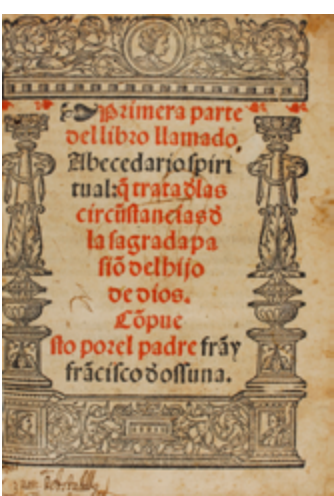 Primera parte
del libro llamado
Abecedario spiri
tual: q̃ trata d̃las
circũstancias d̃
la sagrada pa
siõ del hijo
de dios.
Cõpue
sto por el padre frãy
frãcisco d̃ ossuna.